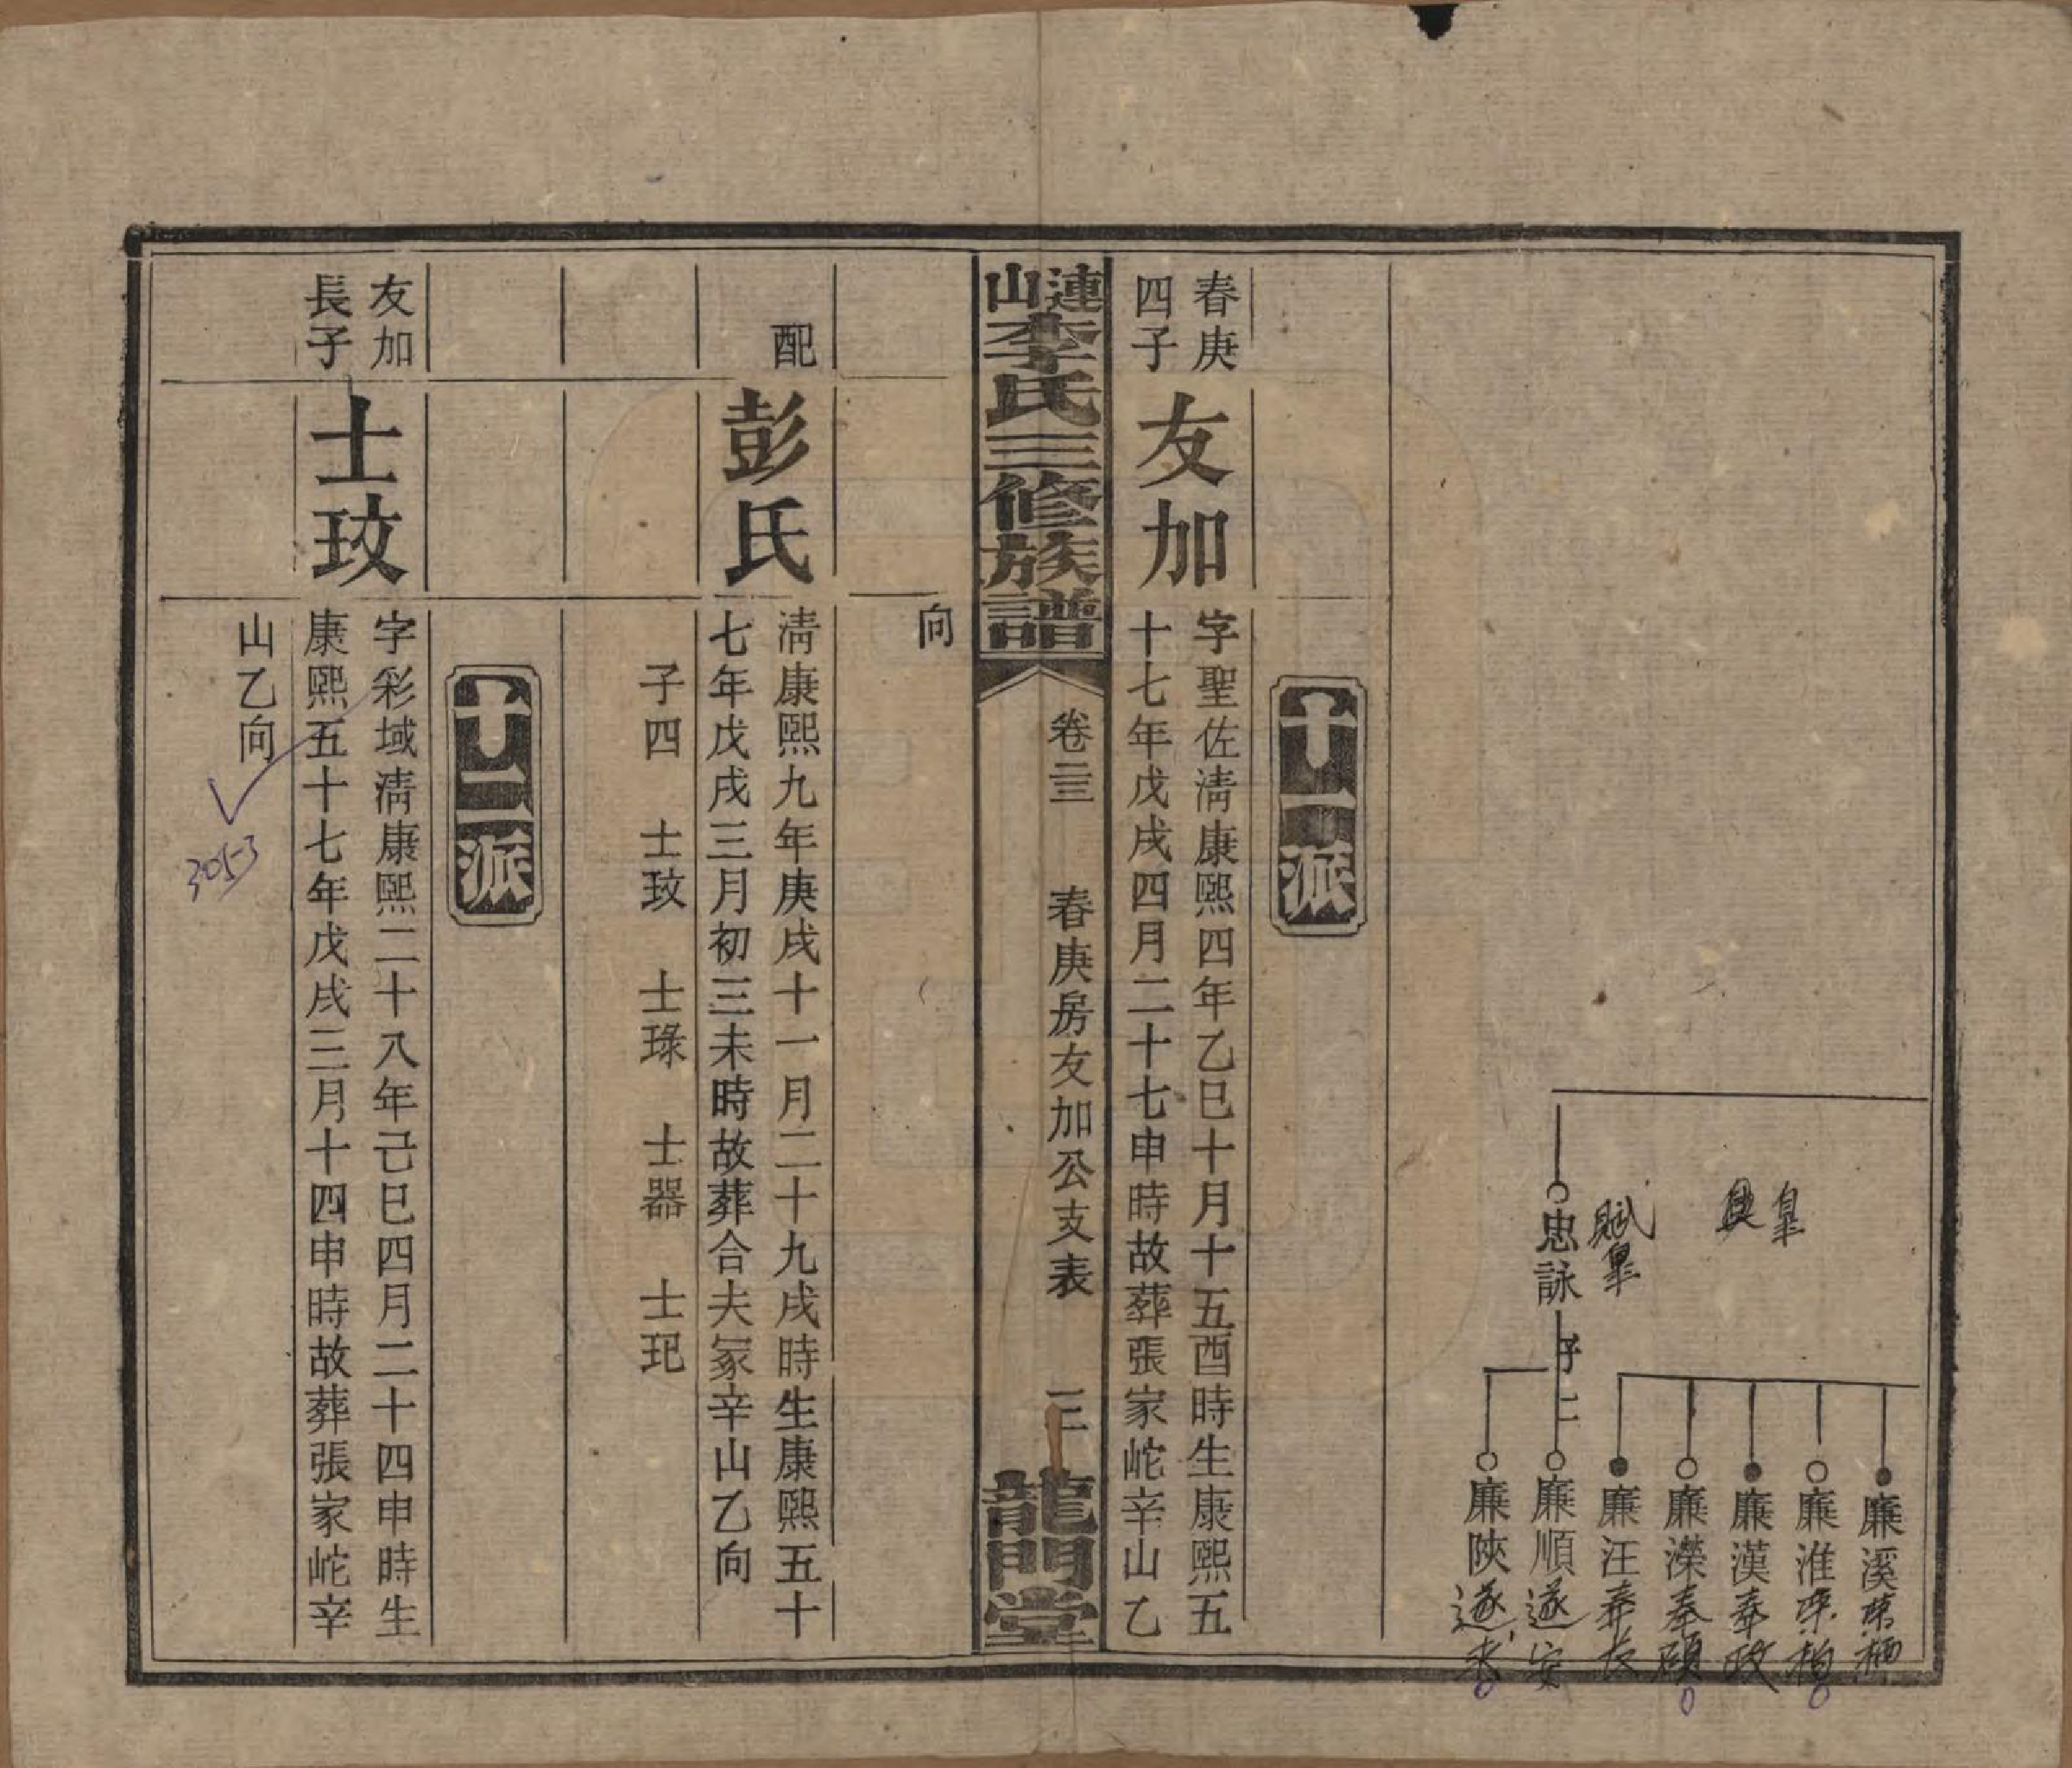 忠詠 子二
賦皇
興皇
廉溪
廉淮
廉漢奉政
廉濴奉碩
廉汪奉長
廉順遂安
廉陝遂
十一派
春庚
四子
友加
字聖佐淸康熙四年乙巳十月十五酉時生康熙五
十七年戊戌四月二十七申時故葬張家㟏辛山乙
漣山李氏三修族譜
卷二三
春庚房友加公支表
三
龍門堂
向
配
彭氏
淸康熙九年庚戌十一月二十九戌時生康熙五十
七年戊戌三月初三未時故葬合夫冢辛山乙向
子四 士玟 士琭 士器 士玘
十二派
友加
長子
士玟
字彩域淸康熙二十八年己巳四月二十四申時生
康熙五十七年戊戌三月十四申時故葬張家㟏辛
山乙向
305-3